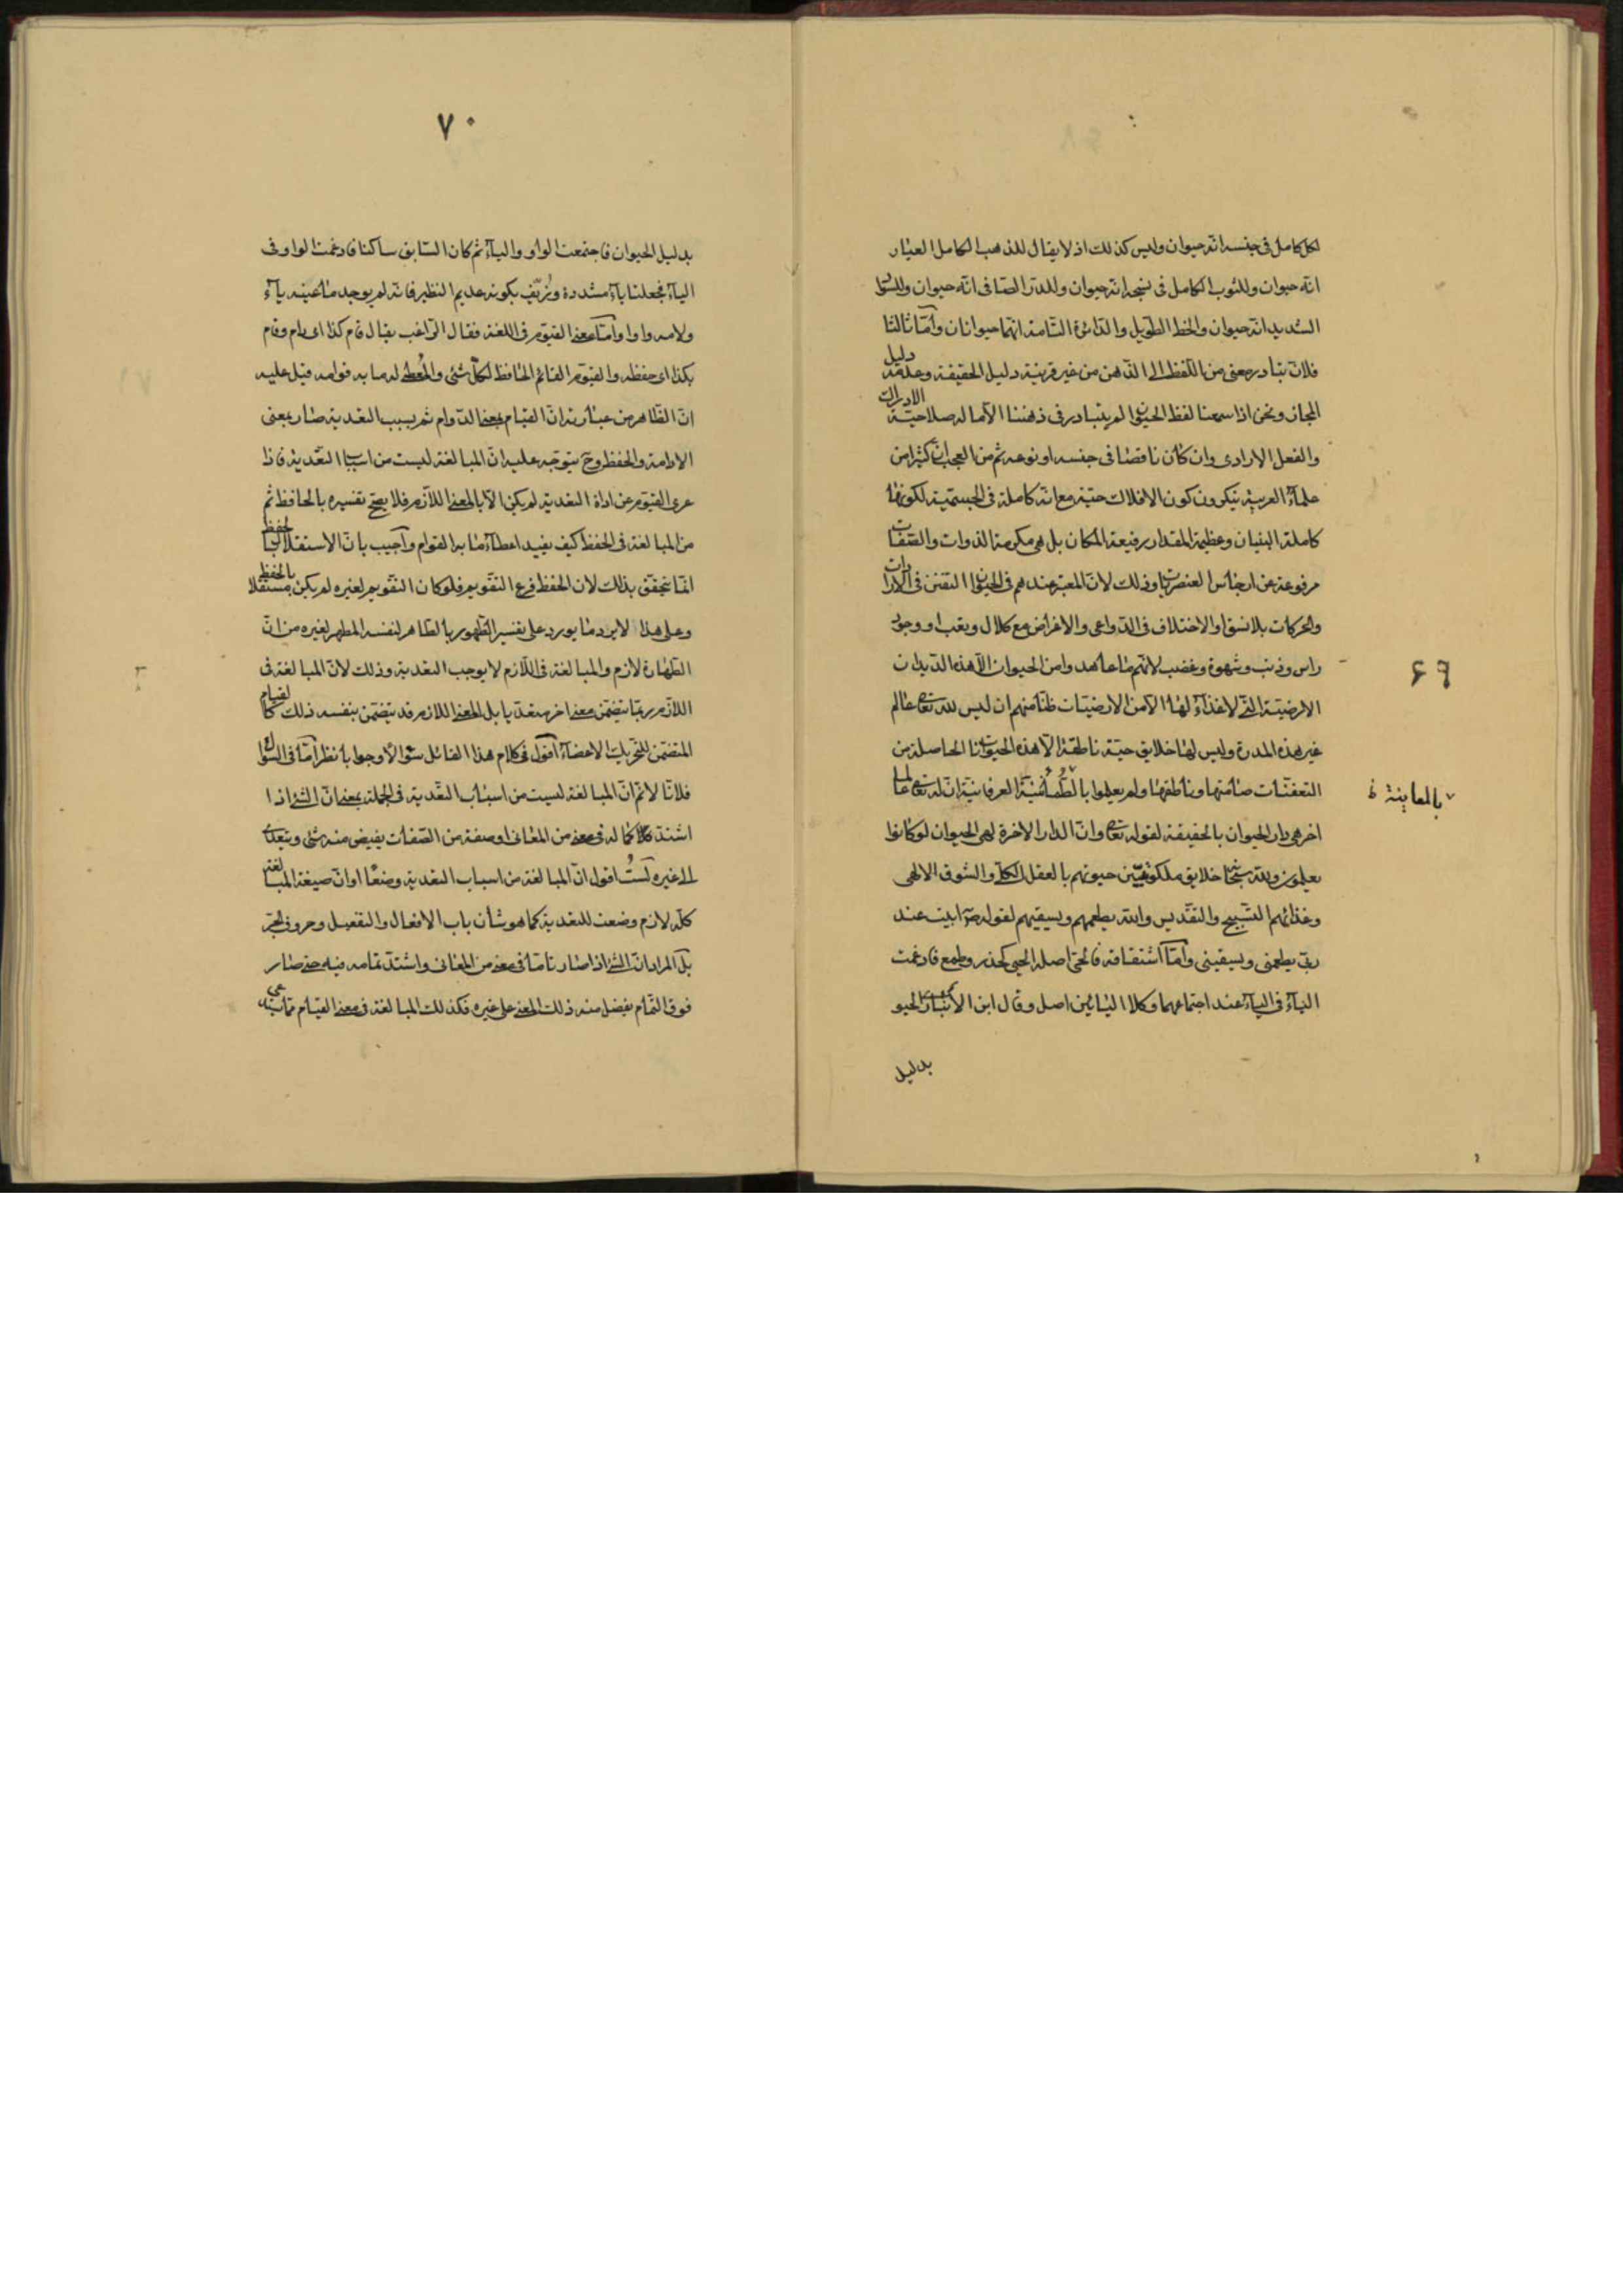 لكل كامل فى جنسه انه حيوان وليس كذلك اذ لا يقال للذهب الكامل العيار
انه حيوان وللثوب الكامل فى نسجه انه حيوان وللدر الصافى انه حيوان وللسواد
الشديد انه حيوان والخط الطويل والدائرة التامة انهما حيوانان وأمّا ثالثا
فلانّ تبادر معنى من اللفظ الى الذهن من غير قرينة دليل الحقيقة وعدمه دليل
المجاز ونحن اذا سمعنا لفظ الحيوان لم يتبادر فى ذهننا الّا ما له صلاحيّة الادراك
والفعل الارادى وان كان ناقصا فى جنسه او نوعه ثم من العجب انّ كثيرا من
علماء العربية ينكرون كون الافلاك حيّة مع انّه كاملة فى الجسميّة لكونها
كاملة البنيان وعظيمة المقدار رفيعة المكان بل هى مكرمة الذوات والصّفات
مرفوعة عن ارجاس العنصريات وذلك لانّ المعتبر عندهم فى الحيوان التفنن فى الارادات
والحركات بلا نسق او الاختلاف فى الدّواعى والاغراض مع كلال وتعب او وجود
راس وذنب وشهوة وغضب لانهم ما عاهدوا من الحيوان الّا هذه الديدان
الارضيّة الّتى لا غذاء لها الا من الارضيّات ظنّا منهم ان ليس لله تعالى عالم
غير هذه المدرة وليس لها خلايق حيّة ناطقة الّا هذه الحيوانات الحاصلة من
التعفّنات صامتها وناطقها ولم يعلموا بالطُّمَأنينَة العرفانيّة انّ لله تعالى عالما
بالمعاينة
اخر هى دار الحيوان بالحقيقة لقوله تعالى وانّ الدار الاخرة لهى الحيوان لو كانوا
يعلمون ولله سبحانه خلايق ملكوتيّين حيوتهم بالعقل الكلّى والشوق الالهى
وغذائهم التسبيح والتقديس والله يطعمهم ويسقيهم لقوله ص ابيت عند
ربّى يطعمنى ويسقينى وأمّا اشتقاقه فالحىّ اصله الحيى كحذر وطمع فادغمت
الياء فى الياء عند اجتماعهما وكلا اليائين اصل وقال ابن الأنبارى الحيو
بدليل
٦٩
٧٠
بدليل الحيوان فاجتمعت الواو والياء ثم كان السّابق ساكنا فادغمت الواو فى
الياء فجعلتا ياء مشددة وزُيّف بكونه عديم النظير فانه لم يوجد ما عينه ياء
ولامه واوا وأمّا معنى القيّوم فى اللغة فقال الرّاغب يقال قام كذا اى دام وقام
بكذا اى حفظه والقيّوم القائم الحافظ لكلّ شئ والمُعطى له ما به قوامه قيل عليه
انّ الظّاهر من عبارته انّ القيام بمعنى الدّوام ثم بسبب التعدية صار بمعنى
الادامة والحفظ وح يتوجّه عليه انّ المبالغة ليست من اسباب التّعدية فاذا
عرى القيّوم عن اداة التعدية لم يكن الّا بالمعنى اللازم فلا يصحّ تفسيره بالحافظ ثم
من المبالغة فى الحفظ كيف يفيد اعطاء ما به القوام وأجيب بانّ الاستقلال بالحفظ
انّما يتحقق بذلك لان الحفظ فرع التقويم فلو كان التقويم لغيره لم يكن مستقلا بالحفظ
وعلى هذا لا يرد ما يورد على تفسير الطّهور بالطّاهر لنفسه المطهر لغيره من انّ
الطهارة لازم والمبالغة فى اللّازم لا يوجب التعدية وذلك لانّ المبالغة فى
اللازم ربّما يتضمّن معنى اخر متعدّيا بل المعنى اللازم قد يتضمّن بنفسه ذلك كالقيام
المتضمّن للتحريك الاعضاء أقول فى كلام هذا القائل سؤالا وجوابا نظر أمّا فى السّؤال
فلانّا لا نم انّ المبالغة ليست من اسباب التّعدية فى الجملة بمعنى انّ الشئ اذا
اشتدّ كماله فى معنى من المعانى او صفة من الصّفات يفيض منه شئ ويتعدّى
الى غيره لَستُ اقول انّ المبالغة من اسباب التعدية وضعًا او انّ صيغة المبالغة
كلّه لازم وضعت للتعدية كما هو شأن باب الافعال والتفعيل وحروف الجر
بل المراد انّ الشئ اذا صار تامّا فى معنى من المعانى واشتدّ تمامه فيه حتى صار
فوق التّمام يفضل منه ذلك المعنى على غيره فكذلك المبالغة فى معنى القيام